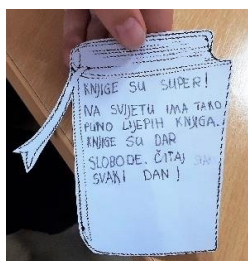 KNJIGE SU SUPER!
NA SVIJETU IMA TAKO
PUNO LIJEPIH KNJIGA.
KNJIGE SU DAR
SLOBODE. ČITAJ
SVAKI DAN!